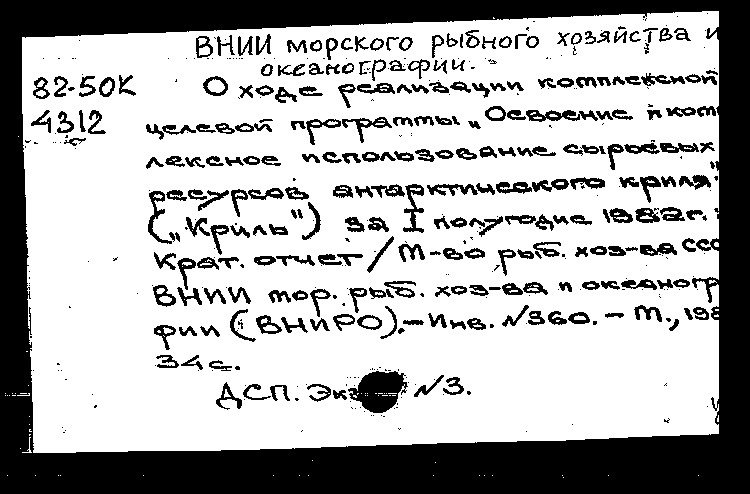 ВНИИ морского рыбного хозяйства и
океанографии.
82-50К
4312
О ходе реализации комплексной
целевой программы „Освоение и комп
лексное использование сырьевых
ресурсов антарктического криля"
(„Криль") за I полугодие 1982г.:
Крат. отчет / М-во рыб. хоз-ва ССС
ВНИИ мор. рыб. хоз-ва и океаногр
фии (ВНИРО).-Инв. №360. - М., 198
34с.
ДСП. Экз №3.